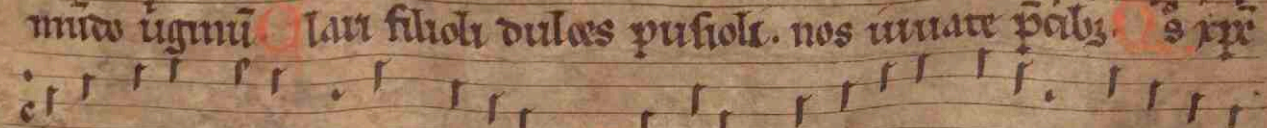 mūdo ūginū Clari filioli dulces pusioli. nos iuuate p̄cibꝫ. Qͦs xp̄c